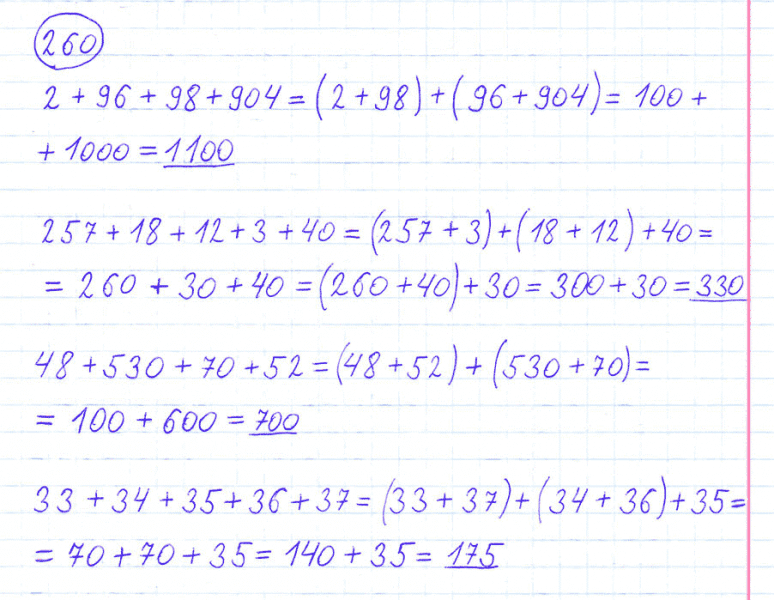 260
2 + 96 + 98 + 904 = (2 + 98) + (96 + 904) = 100 +
+ 1000 = 1100
257 + 18 + 12 + 3 + 40 = (257 + 3) + (18 + 12) + 40 =
= 260 + 30 + 40 = (260 + 40) + 30 = 300 + 30 = 330
48 + 530 + 70 + 52 = (48 + 52) + (530 + 70) =
= 100 + 600 = 700
33 + 34 + 35 + 36 + 37 = (33 + 37) + (34 + 36) + 35 =
= 70 + 70 + 35 = 140 + 35 = 175